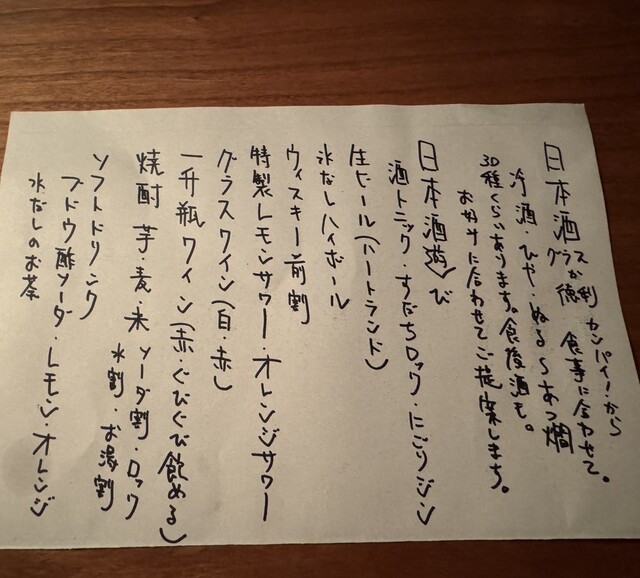 日本酒 グラスか徳利 カンパイ！から
冷酒・ひや・ぬる〜あつ燗 食事に合わせて。
30種くらいあります。食後酒も。
お好みに合わせてご提案します。
日本酒遊び
酒トニック・すだちロック・にごりジン
生ビール(ハートランド)
氷なしハイボール
ウィスキー前割
特製レモンサワー・オレンジサワー
グラスワイン(白・赤)
一升瓶ワイン(赤・ぐびぐび飲める)
焼酎 芋・麦・米 ソーダ割・ロック
水割・お湯割
ソフトドリンク
ブドウ酢ソーダ・レモン・オレンジ
水だしのお茶